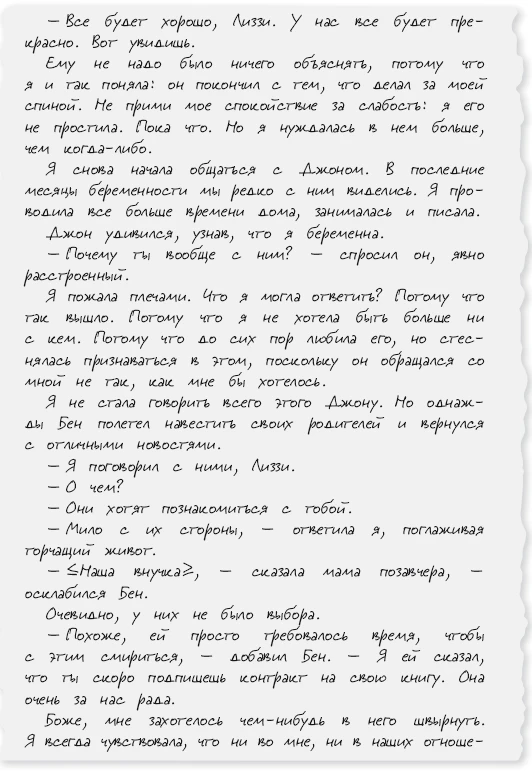 — Все будет хорошо, Лиззи. У нас все будет пре-
красно. Вот увидишь.
Ему не надо было ничего объяснять, потому что
я и так поняла: он покончил с тем, что делал за моей
спиной. Не прими мое спокойствие за слабость: я его
не простила. Пока что. Но я нуждалась в нем больше,
чем когда-либо.
Я снова начала общаться с Джоном. В последние
месяцы беременности мы редко с ним виделись. Я про-
водила все больше времени дома, занималась и писала.
Джон удивился, узнав, что я беременна.
— Почему ты вообще с ним? — спросил он, явно
расстроенный.
Я пожала плечами. Что я могла ответить? Потому что
так вышло. Потому что я не хотела быть больше ни
с кем. Потому что до сих пор любила его, но стес-
нялась признаваться в этом, поскольку он обращался со
мной не так, как мне бы хотелось.
Я не стала говорить всего этого Джону. Но однаж-
ды Бен полетел навестить своих родителей и вернулся
с отличными новостями.
— Я поговорил с ними, Лиззи.
— О чем?
— Они хотят познакомиться с тобой.
— Мило с их стороны, — ответила я, поглаживая
торчащий живот.
— ≤Наша внучка≥, — сказала мама позавчера, —
осклабился Бен.
Очевидно, у них не было выбора.
— Похоже, ей просто требовалось время, чтобы
с этим смириться, — добавил Бен. — Я ей сказал,
что ты скоро подпишешь контракт на свою книгу. Она
очень за нас рада.
Боже, мне захотелось чем-нибудь в него швырнуть.
Я всегда чувствовала, что ни во мне, ни в наших отноше-